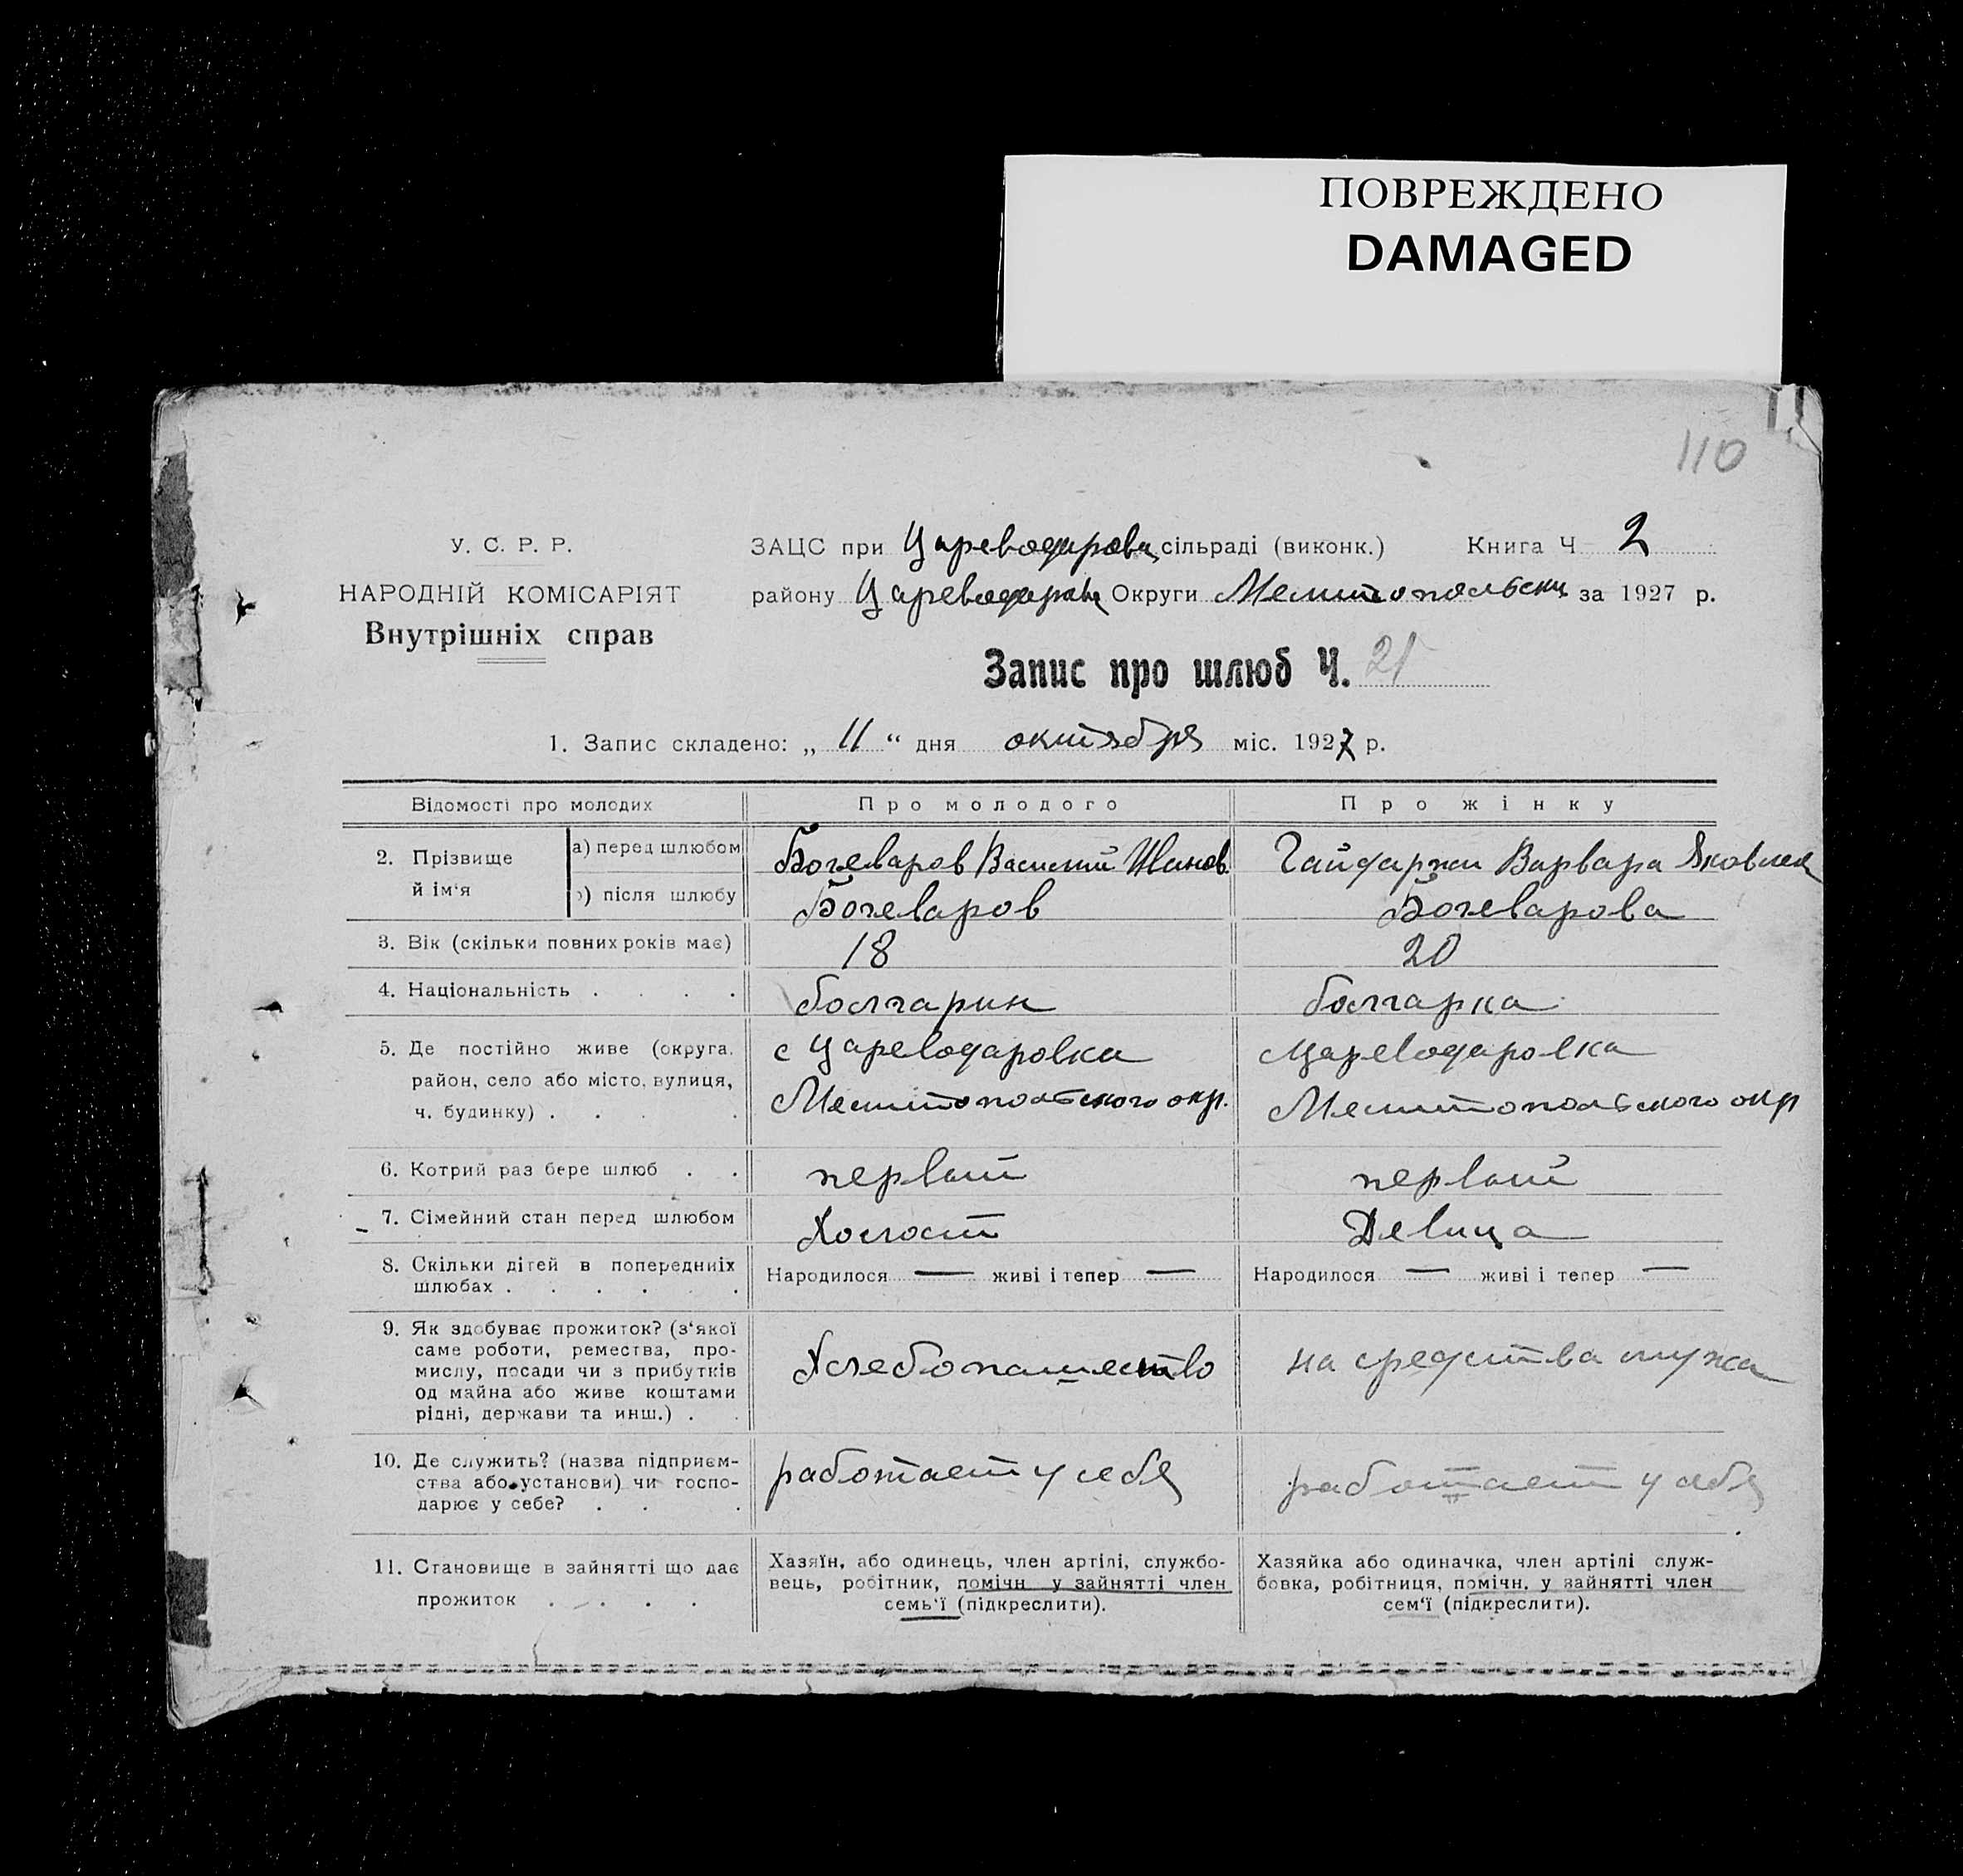 ПОВРЕЖДЕНО
DAMAGED
110
У. С. Р. Р.
НАРОДНІЙ КОМІСАРІЯТ
Внутрішніх справ
ЗАЦС при Цареводаровц сільраді (виконк.) Книга Ч 2
району Цареводаровц Округи Мелитопольскц за 1927 р.
Запис про шлюб Ч. 21
1. Запис складено: „ 11 “ дня октября міс. 1927 р.
Відомості про молодих Про молодого Про жінку
2. Прізвище й ім‘я а) перед шлюбом Богеваров Василий Иванов Гайдаржи Варвара Яковлев
б) після шлюбу Богеваров Богеварова
3. Вік (скільки повних років має) 18 20
4. Національність . . . . болгарин болгарка
5. Де постійно живе (округа, с Цареводаровка с Цареводаровка
район, село або місто, вулиця, Мелитопольского окр. Мелитопольского окр
ч. будинку) . . . .
6. Котрий раз бере шлюб . . первый первый
7. Сімейний стан перед шлюбом Холост Девица
8. Скільки дітей в попередниіх Народилося — живі і тепер — Народилося — живі і тепер —
шлюбах . . . . . .
9. Як здобуває прожиток? (з‘якої
саме роботи, ремества, про-
мислу, посади чи з прибутків Хлебопашество на средства мужа
од майна або живе коштами
рідні, держави та инш.) . .
10. Де служить? (назва підприєм-
ства або установи) чи госпо- работает у себя работает у себя
дарює у себе? . . .
11. Становище в зайнятті що дає Хазяїн, або одинець, член артілі, службо- Хазяйка або одиначка, член артілі служ-
прожиток . . . . вець, робітник, помічн у зайнятті член бовка, робітниця, помічн. у зайнятті член
семь‘ї (підкреслити). сем‘ї (підкреслити).